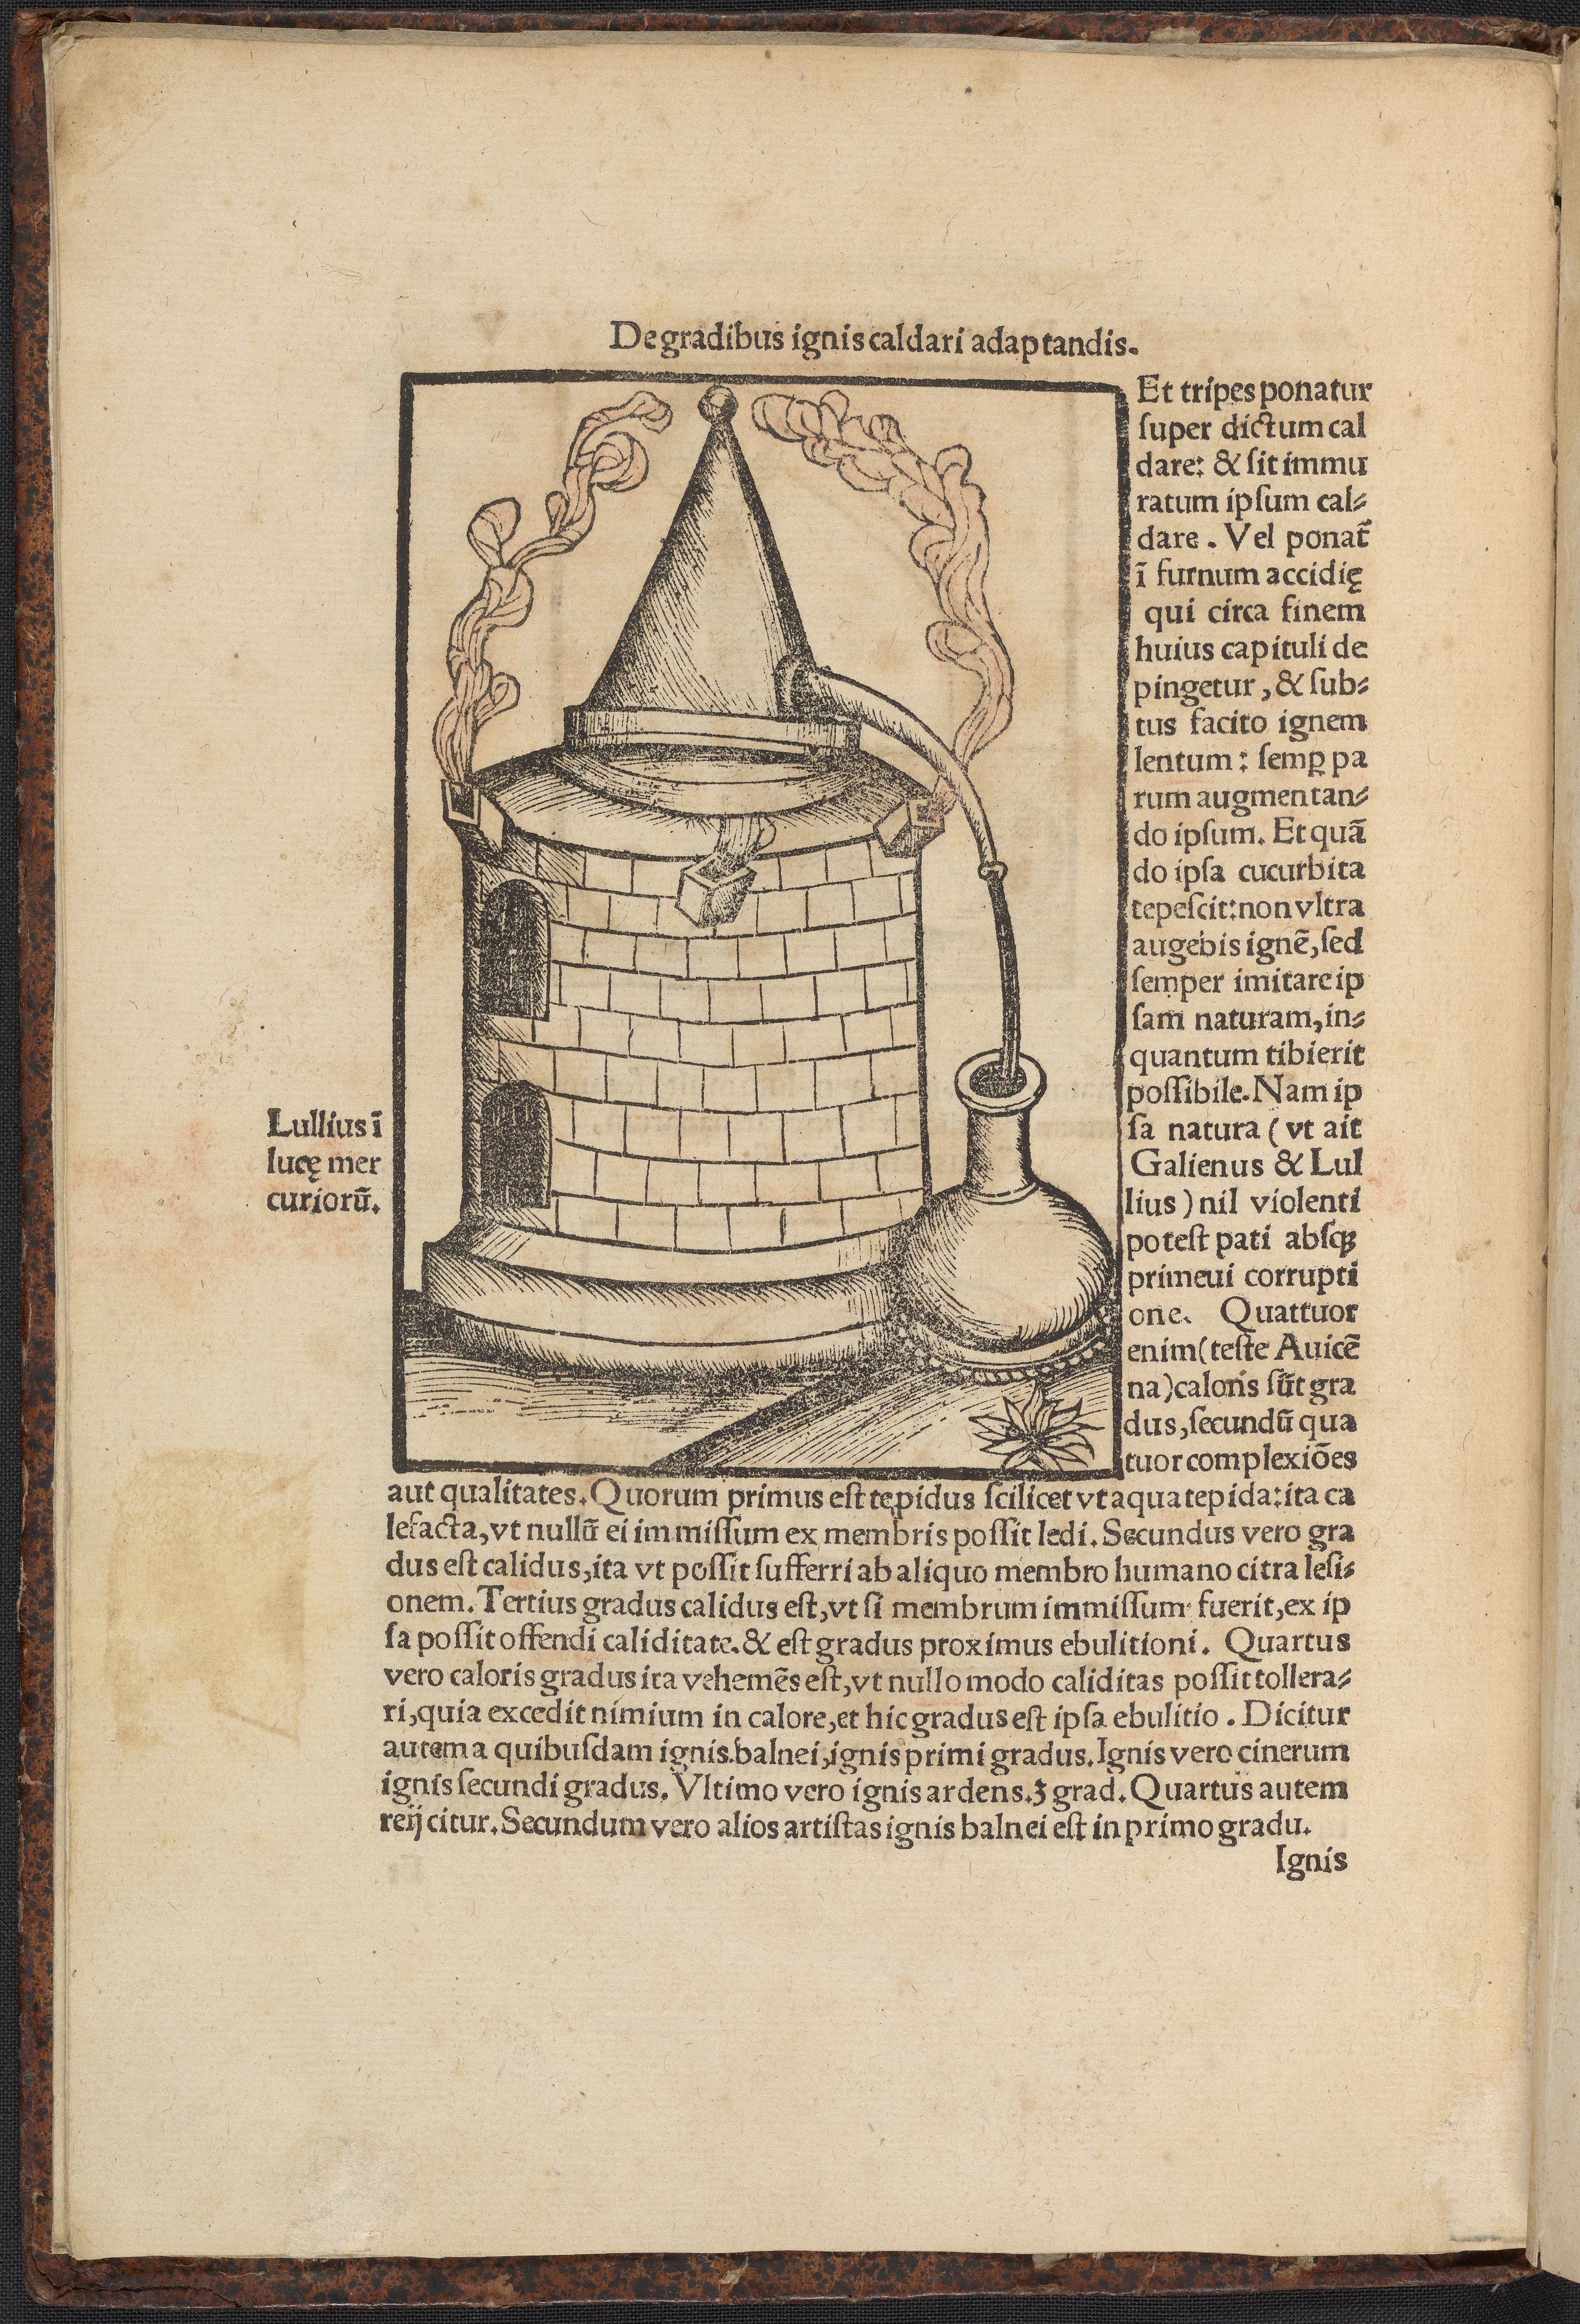 De gradibus ignis caldari adaptandis.
Et tripes ponatur
ſuper dictum cal
dare: & ſit immu
ratum ipſum cal⸗
dare. Vel ponat̃
ĩ furnum accidię
qui circa finem
huius capituli de
pingetur, & ſub⸗
tus facito ignem
lentum: ſemꝑ pa
rum augmentan⸗
do ipſum. Et quã
do ipſa cucurbita
tepeſcit: non vltra
augebis ignẽ, ſed
ſemper imitare ip
ſam naturam, in⸗
quantum tibi erit
poſſibile. Nam ip
ſa natura (vt ait
Galienus & Lul
lius) nil violenti
poteſt pati abſqꝫ
primeui corrupti
one. Quattuor
enim (teſte Auicẽ
na) caloris ſũt gra
dus, ſecundũ qua
tuor complexiões
Lullius ĩ
lucę mer
curiorũ.
aut qualitates. Quorum primus eſt tepidus ſcilicet vt aqua tepida: ita ca
lefacta, vt nullũ ei immiſſum ex membris poſſit ledi. Secundus vero gra
dus eſt calidus, ita vt poſſit ſufferri ab aliquo membro humano citra leſi⸗
onem. Tertius gradus calidus eſt, vt ſi membrum immiſſum fuerit, ex ip
ſa poſſit offendi caliditate. & eſt gradus proximus ebulitioni. Quartus
vero caloris gradus ita vehemẽs eſt, vt nullo modo caliditas poſſit tollera⸗
ri, quia excedit nimium in calore, et hic gradus eſt ipſa ebulitio. Dicitur
autem a quibuſdam ignis balnei, ignis primi gradus. Ignis vero cinerum
ignis ſecundi gradus. Vltimo vero ignis ardens. 3 grad. Quartus autem
reijcitur. Secundum vero alios artiſtas ignis balnei eſt in primo gradu.
Ignis